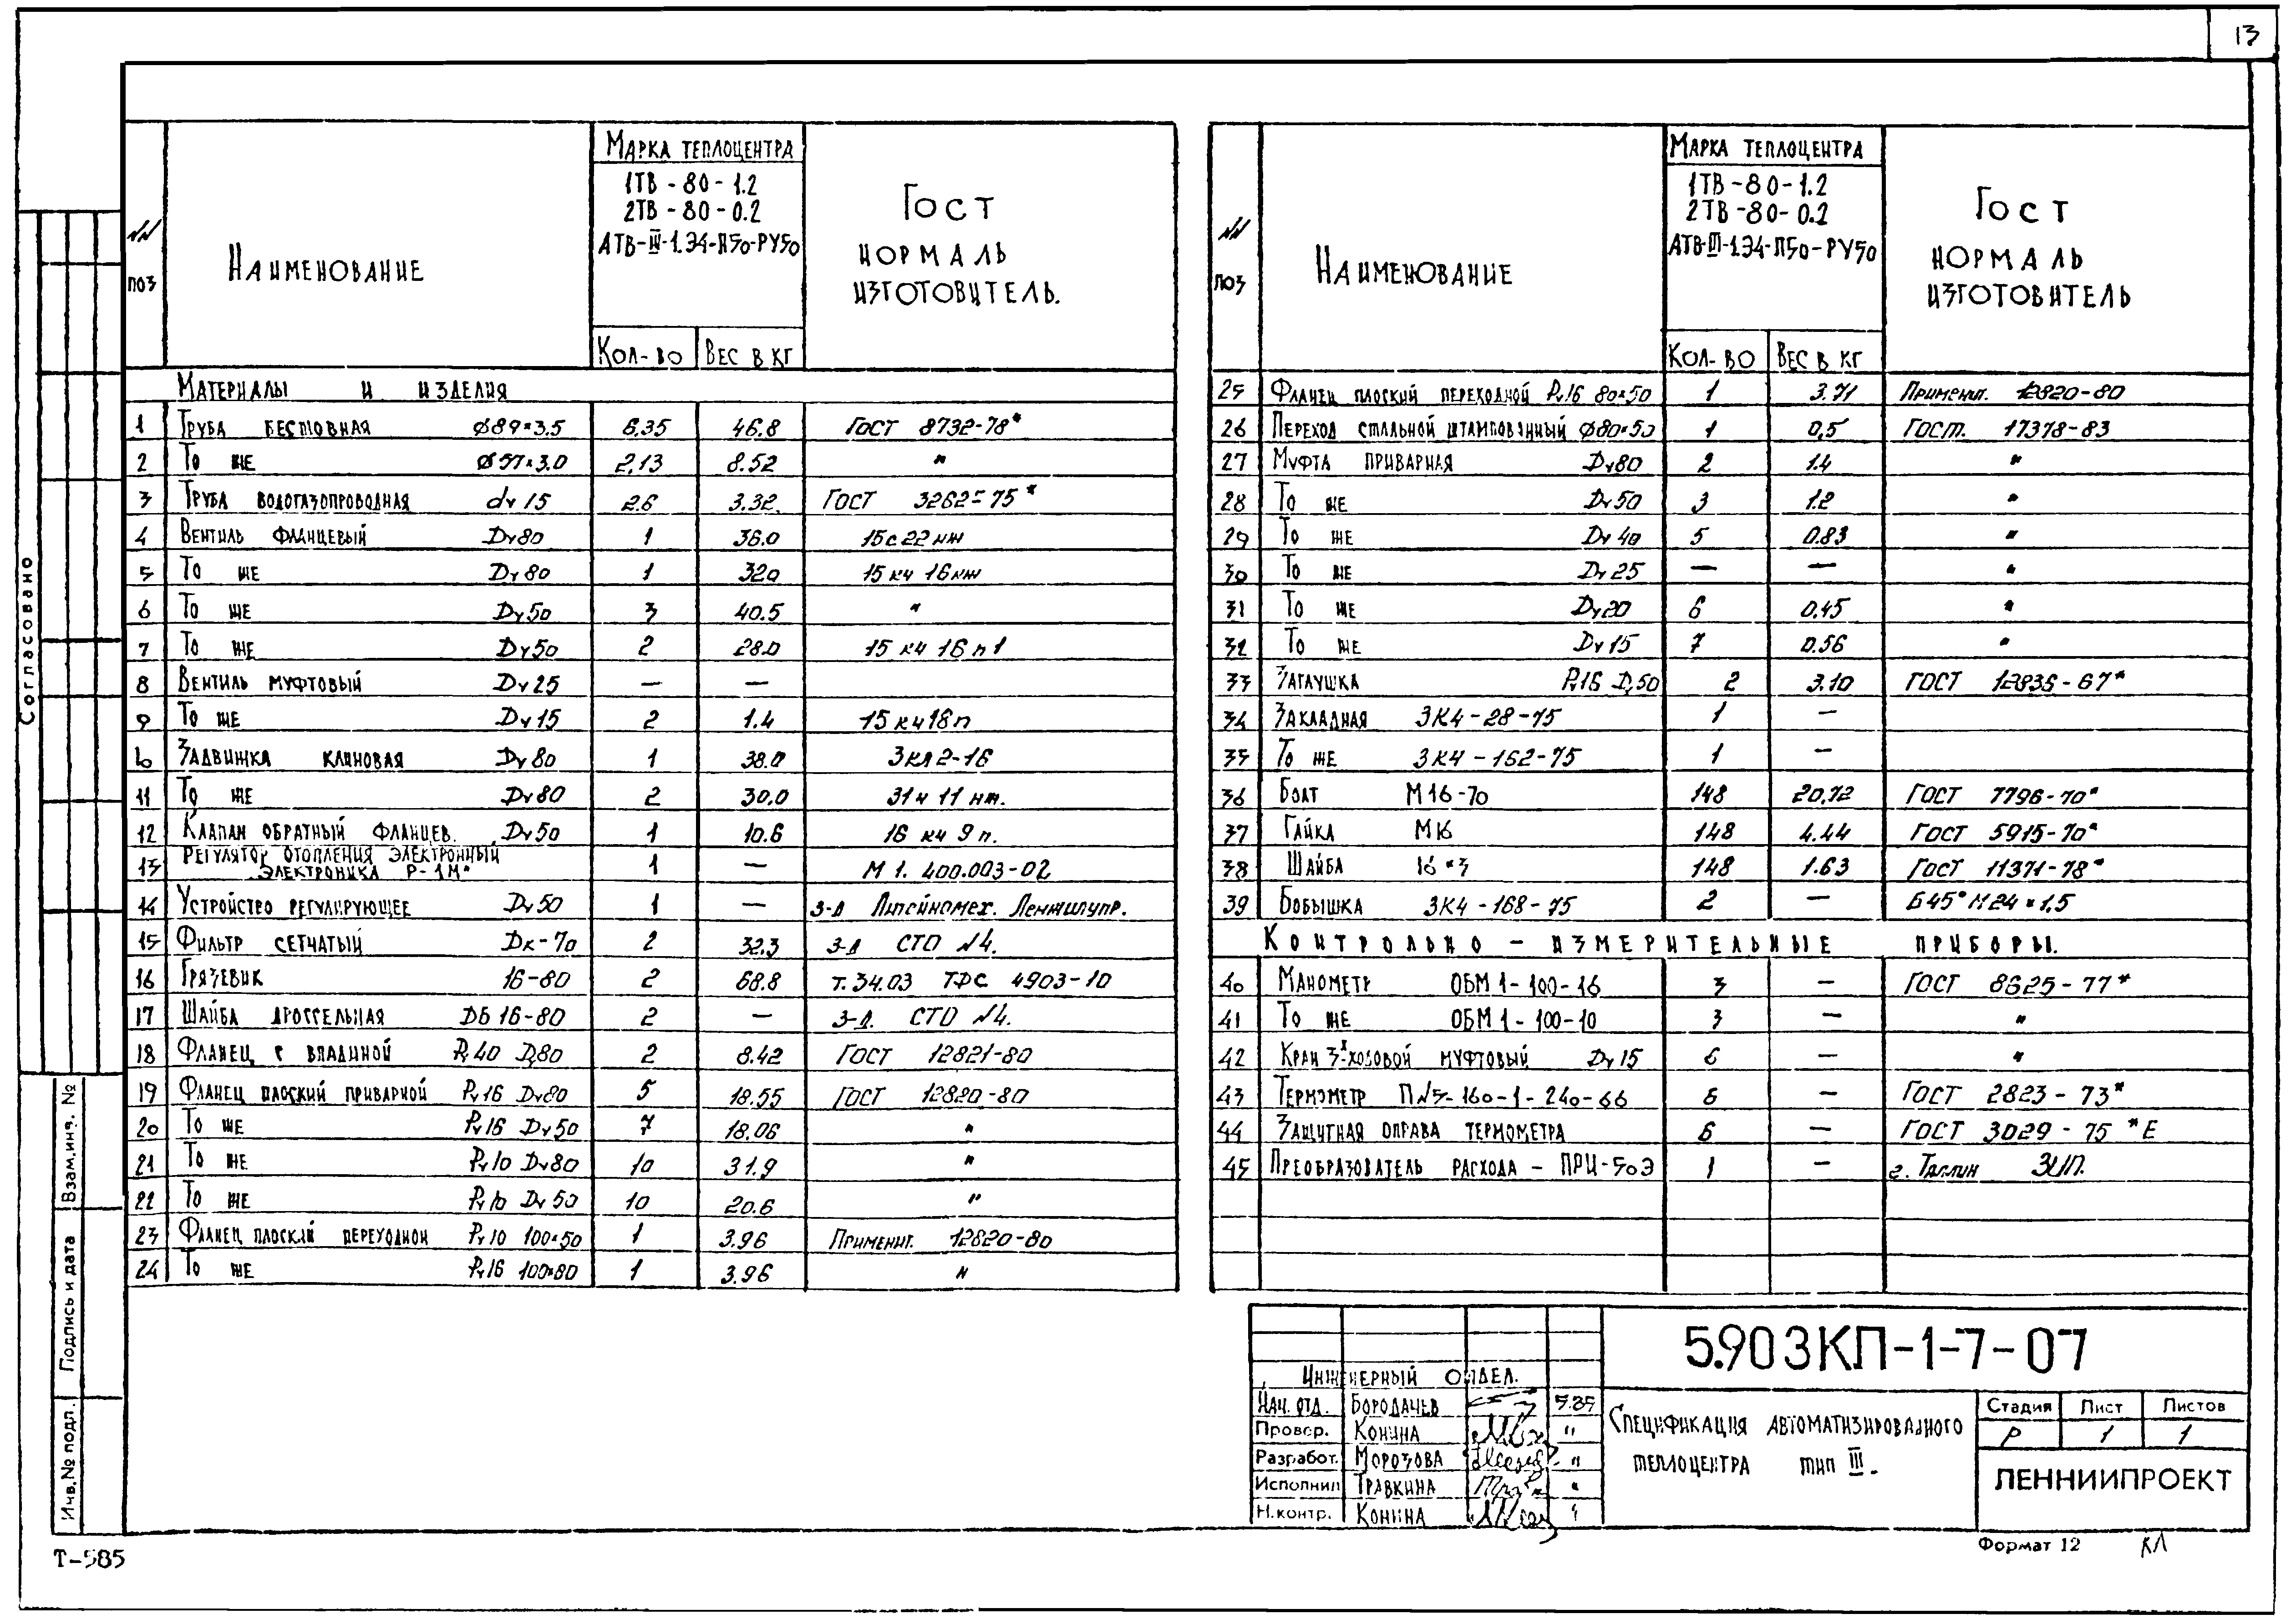 13
NN поз
Наименование
Марка теплоцентра
1ТВ-80-1.2
2ТВ-80-0.2
АТВ-III-1.ЭЧ-П50-РУ50
Кол-во Вес в кг
Гост
нормаль
изготовитель.
Материалы и изделия
1 Труба бесшовная ø89×3.5 6.35 46.8 Гост 8732-78*
2 То же ø57×3.0 2.13 8.52 "
3 Труба водогазопроводная dу 15 2.6 3.32. Гост 3262-75*
4 Вентиль фланцевый Dу80 1 36.0 15с22нж
5 То же Dу80 1 32.0 15кч16нж
6 То же Dу50 3 40.5 "
7 То же Dу50 2 28.0 15кч16п1
8 Вентиль муфтовый Dу25 — —
9 То же Dу15 2 1.4 15кч18п
10 Задвижка клиновая Dу80 1 38.0 ЗКЛ2-16
11 То же Dу80 2 30.0 31ч11нж.
12 Клапан обратный фланцев. Dу50 1 10.6 16кч9п.
13 Регулятор отопления электронный
"Электроника Р-1М" 1 — М1.400.003-02
14 Устройство регулирующее Dу50 1 — З-д Литейномех. Ленжилупр.
15 Фильтр сетчатый Dк-70 2 32.3 З-д СТО N4.
16 Грязевик 16-80 2 68.8 т.34.03 ТДС 4903-10
17 Шайба дроссельная ДБ 16-80 2 — З-д. СТО N4.
18 Фланец с впадиной Pу40 Dу80 2 8.42 Гост 12821-80
19 Фланец плоский приварной Pу16 Dу80 5 18.55 Гост 12820-80
20 То же Pу16 Dу50 7 18.06 "
21 То же Pу10 Dу80 10 31.9 "
22 То же Pу10 Dу50 10 20.6 "
23 Фланец плоский переходной Pу10 100×50 1 3.96 Применит. 12820-80
24 То же Pу16 100×80 1 3.96 "
NN поз
Наименование
Марка теплоцентра
1ТВ-80-1.2
2ТВ-80-0.2
АТВ-III-1.ЭЧ-П50-РУ50
Кол-во Вес в кг
Гост
нормаль
изготовитель
25 Фланец плоский переходной Pу16 80×50 1 3.71 Применит. 12820-80
26 Переход стальной штампованный ø80×50 1 0,5 Гост. 17378-83
27 Муфта приварная Dу80 2 1.4 "
28 То же Dу50 3 1.2 "
29 То же Dу40 5 0.83 "
30 То же Dу25 — — "
31 То же Dу20 6 0.45 "
32 То же Dу15 7 0.56 "
33 Заглушка Pу16 Dу50 2 3.10 Гост 12836-67*
34 Закладная ЗК4-28-75 1 —
35 То же ЗК4-162-75 1 —
36 Болт М16-70 148 20.72 Гост 7796-70*
37 Гайка М16 148 4.44 Гост 5915-70*
38 Шайба 16×3 148 1.63 Гост 11371-78*
39 Бобышка ЗК4-168-75 2 — Б45° М24×1,5
Контрольно - измерительные приборы.
40 Манометр ОБМ1-100-16 3 — Гост 8625-77*
41 То же ОБМ1-100-10 3 — "
42 Кран 3х-ходовой муфтовый Dу15 6 — "
43 Термометр ПN5-160-1-240-66 6 — Гост 2823-73*
44 Защитная оправа термометра 6 — Гост 3029-75*Е
45 Преобразователь расхода - ПРИ-50Э 1 — г. Таллин ЗИП.
5.903КП-1-7-07
Инженерный отдел.
Нач. отд. Бородачев 5.85
Провер. Конина "
Разработ. Морозова "
Исполнил Травкина "
Н.контр. Конина "
Спецификация автоматизированного
теплоцентра тип III.
Стадия Лист Листов
Р 1 1
ЛЕННИИПРОЕКТ
Формат 12
КЛ
Т-585
Согласовано
Взам.инв. №
Подпись и дата
Инв.№ подл.